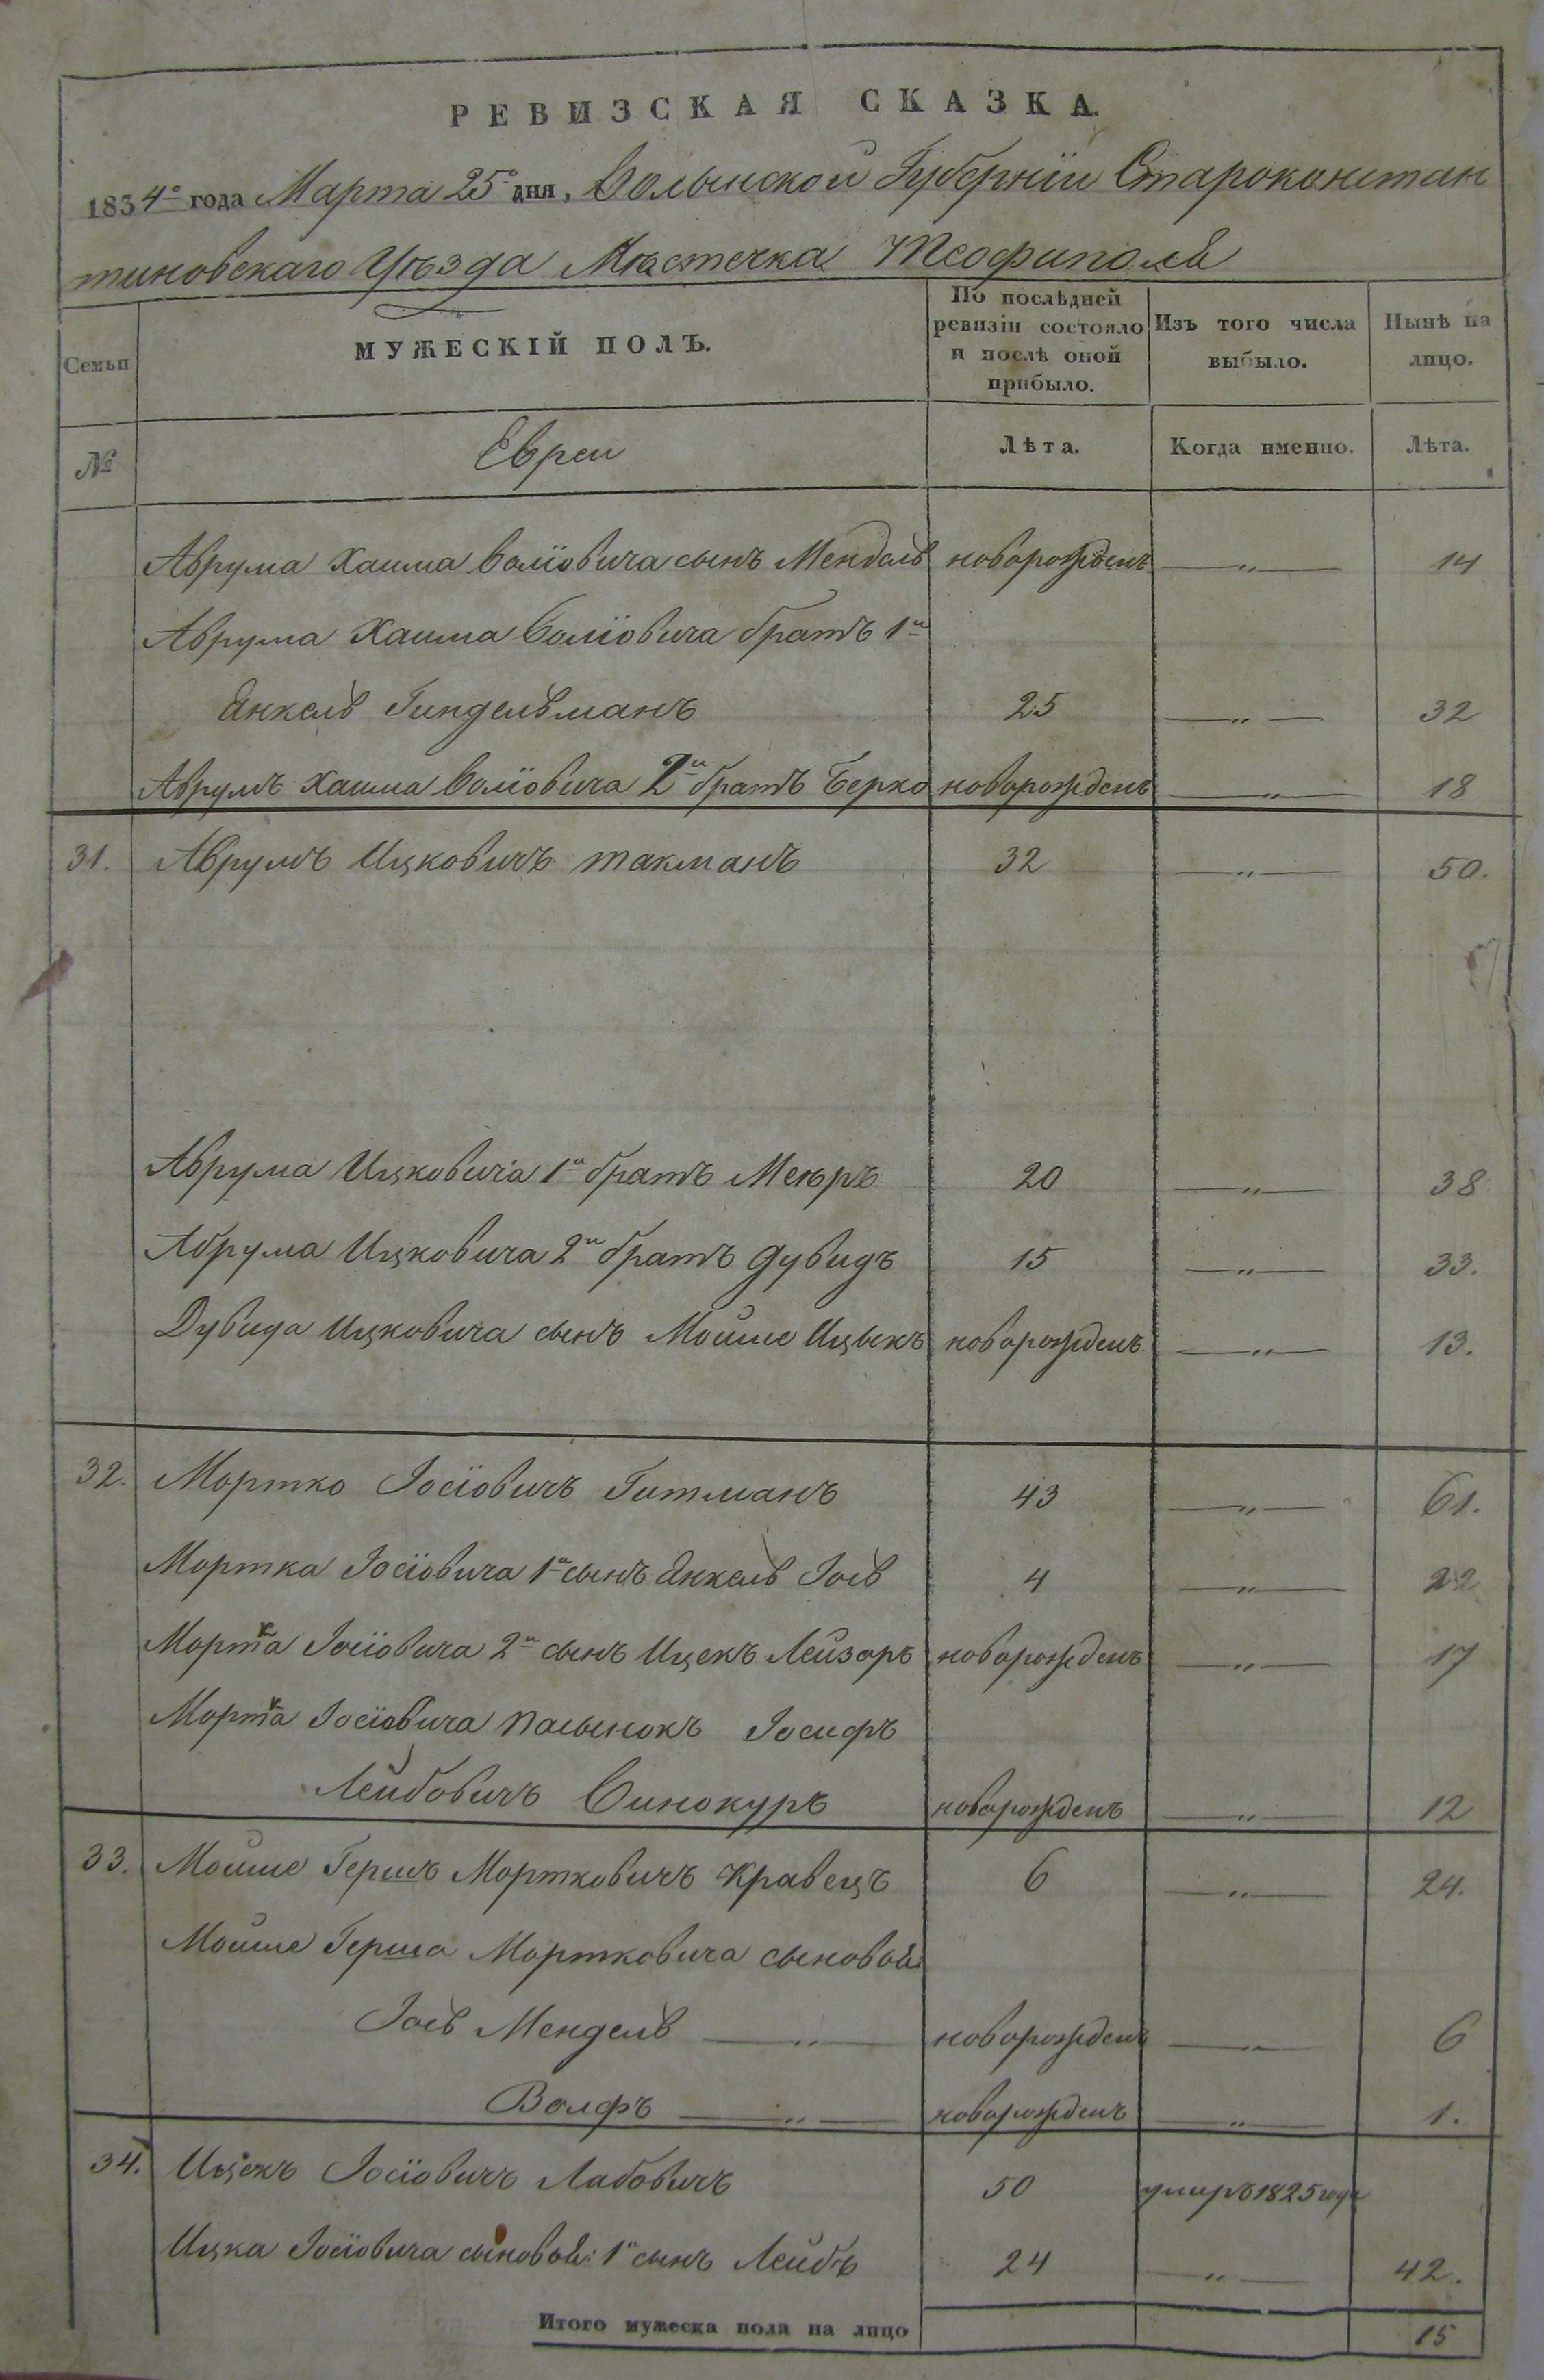 РЕВИЗСКАЯ СКАЗКА.
1834го года Марта 25го дня, Волынской Губерніи Староконстан
тиновскаго Уѣзда Мѣстечка Теофиполь
Семьи
МУЖЕСКІЙ ПОЛЪ.
По послѣдней ревизіи состояло и послѣ оной прибыло.
Изъ того числа выбыло.
Нынѣ на лицо.
№ Евреи Лѣта. Когда именно. Лѣта.
Аврума Хаима Волїовича сынъ Мендель новорожденъ —„— 14
Аврума Хаима Волїовича братъ 1й
Янкель Гиндельманъ 25 —„— 32
Аврумъ Хаима Волїовича 2й братъ Берко новорожденъ —„— 18
31. Аврумъ Ицковичъ такманъ 32 —„— 50.
Аврума Ицковича 1й братъ Меюръ 20 —„— 38
Аврума Ицковича 2й братъ Дувидъ 15 —„— 33.
Дувида Ицковича сынъ Мойше Ицыкъ новорожденъ —„— 13.
32. Мортко Іосїовичъ Гитманъ 43 —„— 61.
Мортка Іосїовича 1й сынъ Янкель Іось 4 —„— 22
Мортка Іосїовича 2й сынъ Ицекъ Лейзоръ новорожденъ —„— 17
Мортка Іосїовича пасынокъ Іосифъ
Лейбовичъ Винокуръ новорожденъ —„— 12
33. Мойше Гершъ Мортковичъ Кравецъ 6 —„— 24.
Мойше Герша Мортковича сыновья
Іось Мендель —„— новорожденъ —„— 6
Волфъ —„— новорожденъ —„— 1.
34. Ицекъ Іосїовичъ Лабовичъ 50 умиръ 1825 года
Ицка Іосїовича сыновья: 1й сынъ Лейбъ 24 —„— 42.
Итого мужеска пола на лицо 15